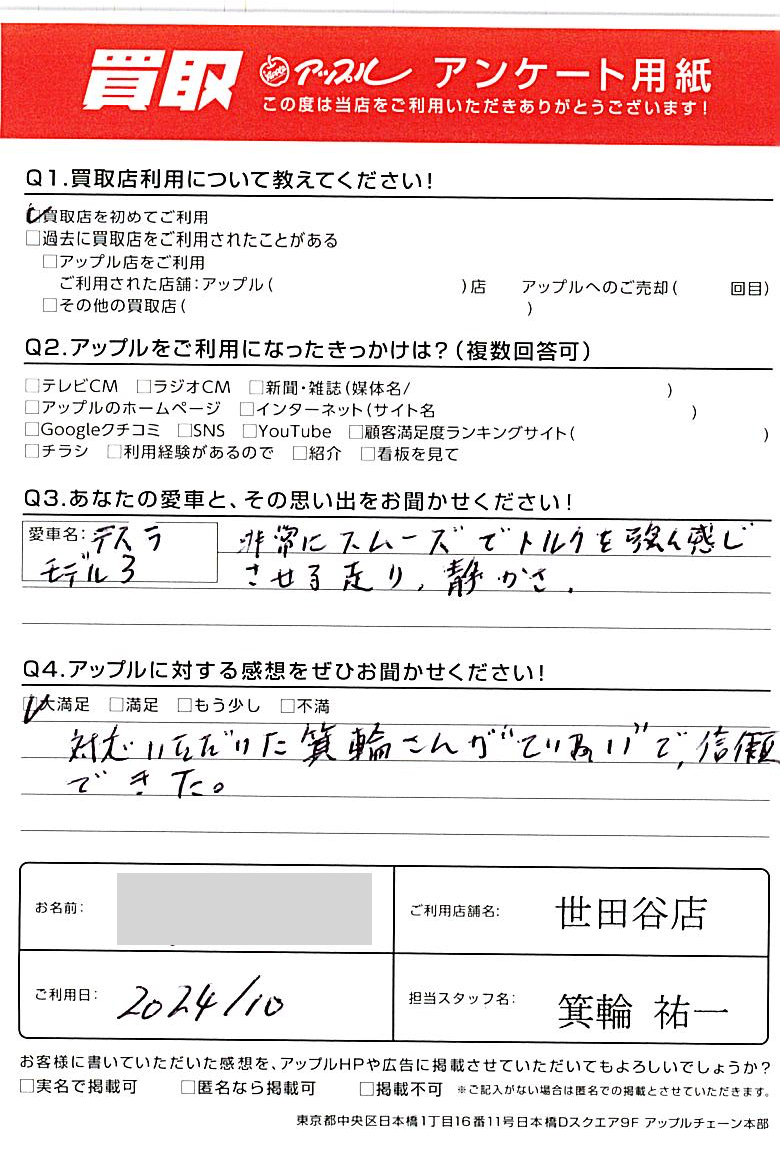 買取 アップル アンケート用紙
この度は当店をご利用いただきありがとうございます!
Q1.買取店利用について教えてください!
☑買取店を初めてご利用
□過去に買取店をご利用されたことがある
□アップル店をご利用
ご利用された店舗:アップル( )店 アップルへのご売却( 回目)
□その他の買取店( )
Q2.アップルをご利用になったきっかけは?(複数回答可)
□テレビCM □ラジオCM □新聞・雑誌(媒体名/ )
□アップルのホームページ □インターネット(サイト名 )
□Googleクチコミ □SNS □YouTube □顧客満足度ランキングサイト( )
□チラシ □利用経験があるので □紹介 □看板を見て
Q3.あなたの愛車と、その思い出をお聞かせください!
愛車名:テスラ 非常にスムーズでトルクを強く感じ
モデル3 させる走り、静かさ.
Q4.アップルに対する感想をぜひお聞かせください!
☑大満足 □満足 □もう少し □不満
対応いただけた箕輪さんが"ていねい"で、信頼
できた。
お名前: ご利用店舗名: 世田谷店
ご利用日: 2024/10 担当スタッフ名: 箕輪 祐一
お客様に書いていただいた感想を、アップルHPや広告に掲載させていただいてもよろしいでしょうか?
□実名で掲載可 □匿名なら掲載可 □掲載不可 ※ご記入がない場合は匿名での掲載とさせていただきます。
東京都中央区日本橋1丁目16番11号日本橋Dスクエア9F アップルチェーン本部